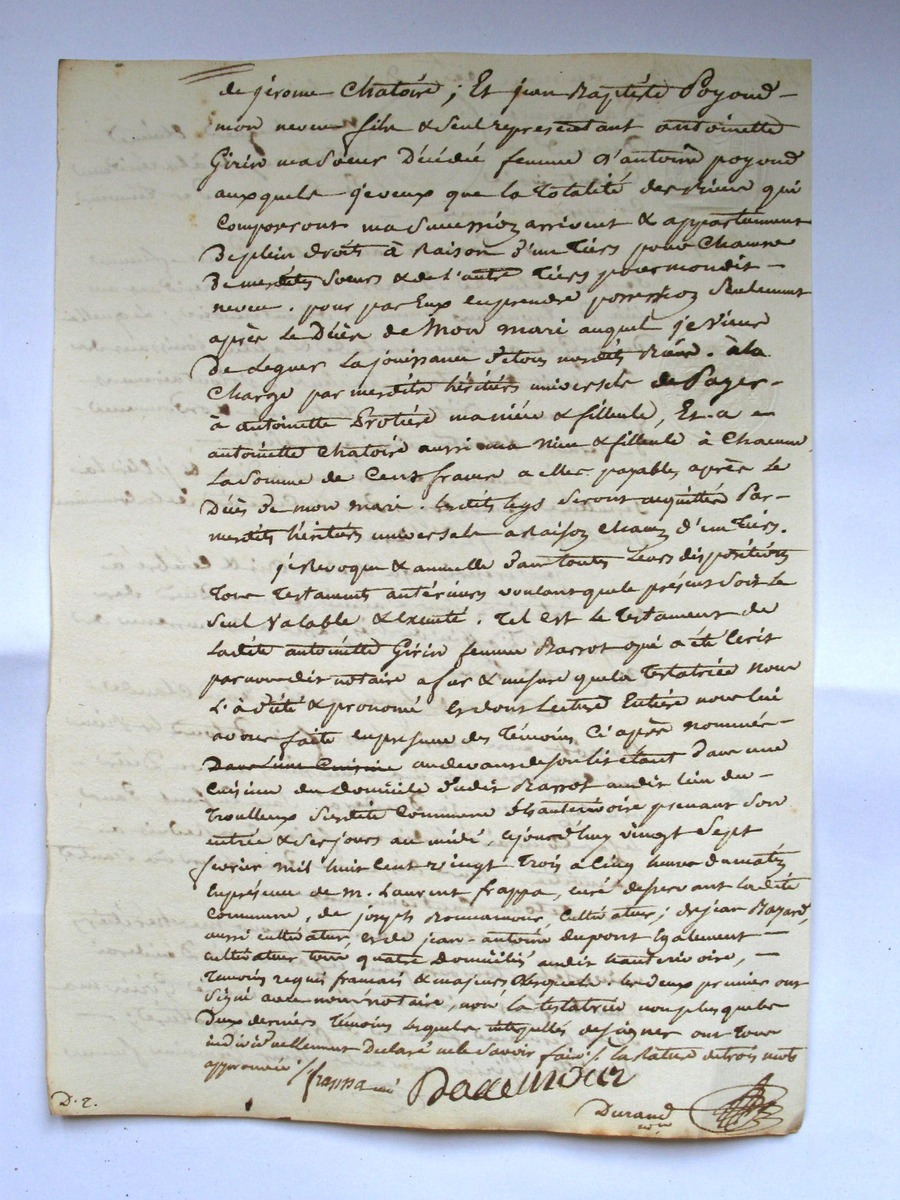 de jérome Chatoire ; Et jean Baptiste Poyoud -
mon neveu fils & seul representant antoinette
Girin ma Soeur Décédée femme d'antoine poyoud
auxquels je veux que la Totalité des biens qui
Composeront ma Succession arrivent & appartiennent
De plein droits à Raison d'un Tiers pour Chacune
De mesdites Soeurs & de l'autre Tiers pour mondit -
neveu . pour par Eux en prendre possession Seulement
après Le Décès de Mon mari auquel je viens
De Leguer La jouissance de tous mesdits Biens . à la
Charge par mesdits héritiers universels de Payer -
à antoinette Protière ma nièce & filleule, Et a -
antoinette Chatoire aussi ma Nièce & filleule à Chacune
La Somme de Cent francs a elles payables après Le
Décès de mon mari . lesdits legs Seront acquittés Par -
mesdits héritiers universels a Raison Chacun d'un Tiers.
je Revoque & annulle dans toutes Leurs dispositions
Tous Testaments antérieurs voulant que le présent Soit Le
Seul Valable & Exécuté . Tel est Le Testament de
Ladite antoinette Girin femme Barrot qui a été Ecrit
par nous dit notaire a fur & mesure que la Testatrice nous
L'à dicté & prononcé Et dont Lecture Entière nous lui
avons faite en presence des Témoins Ci après nommés -
Dans une Cuisine au devant de son lit étant dans une
Cuisine du Domicile dudit Barrot audit lieu du -
Troulleux Susdite Commune d'hauterivoire prenant Son
entrée & Ses jours au midi, aujourd'huy vingt Sept
février mil huit Cent vingt Trois a Cinq heures du matin
En présence de m. Laurent frappa, curé desservant Ladite
Commune, de joseph Cultivateur ; de jean Bazard,
aussi cultivateur, et de jean-antoine dupont Egalement -
cultivateur tous quatre Domiciliés audit hauterivoire, -
Temoins requis français & majeurs desquels les deux premiers ont
Signé avec nous notaire, non la testatrice non plus que les
Deux derniers Témoins lesquels interpellés de signer ont Tous
individuellement Declaré ne le Savoir faire /. la Rature de trois mots
approuvée /. frappa curé
Durand
nre
D. r.